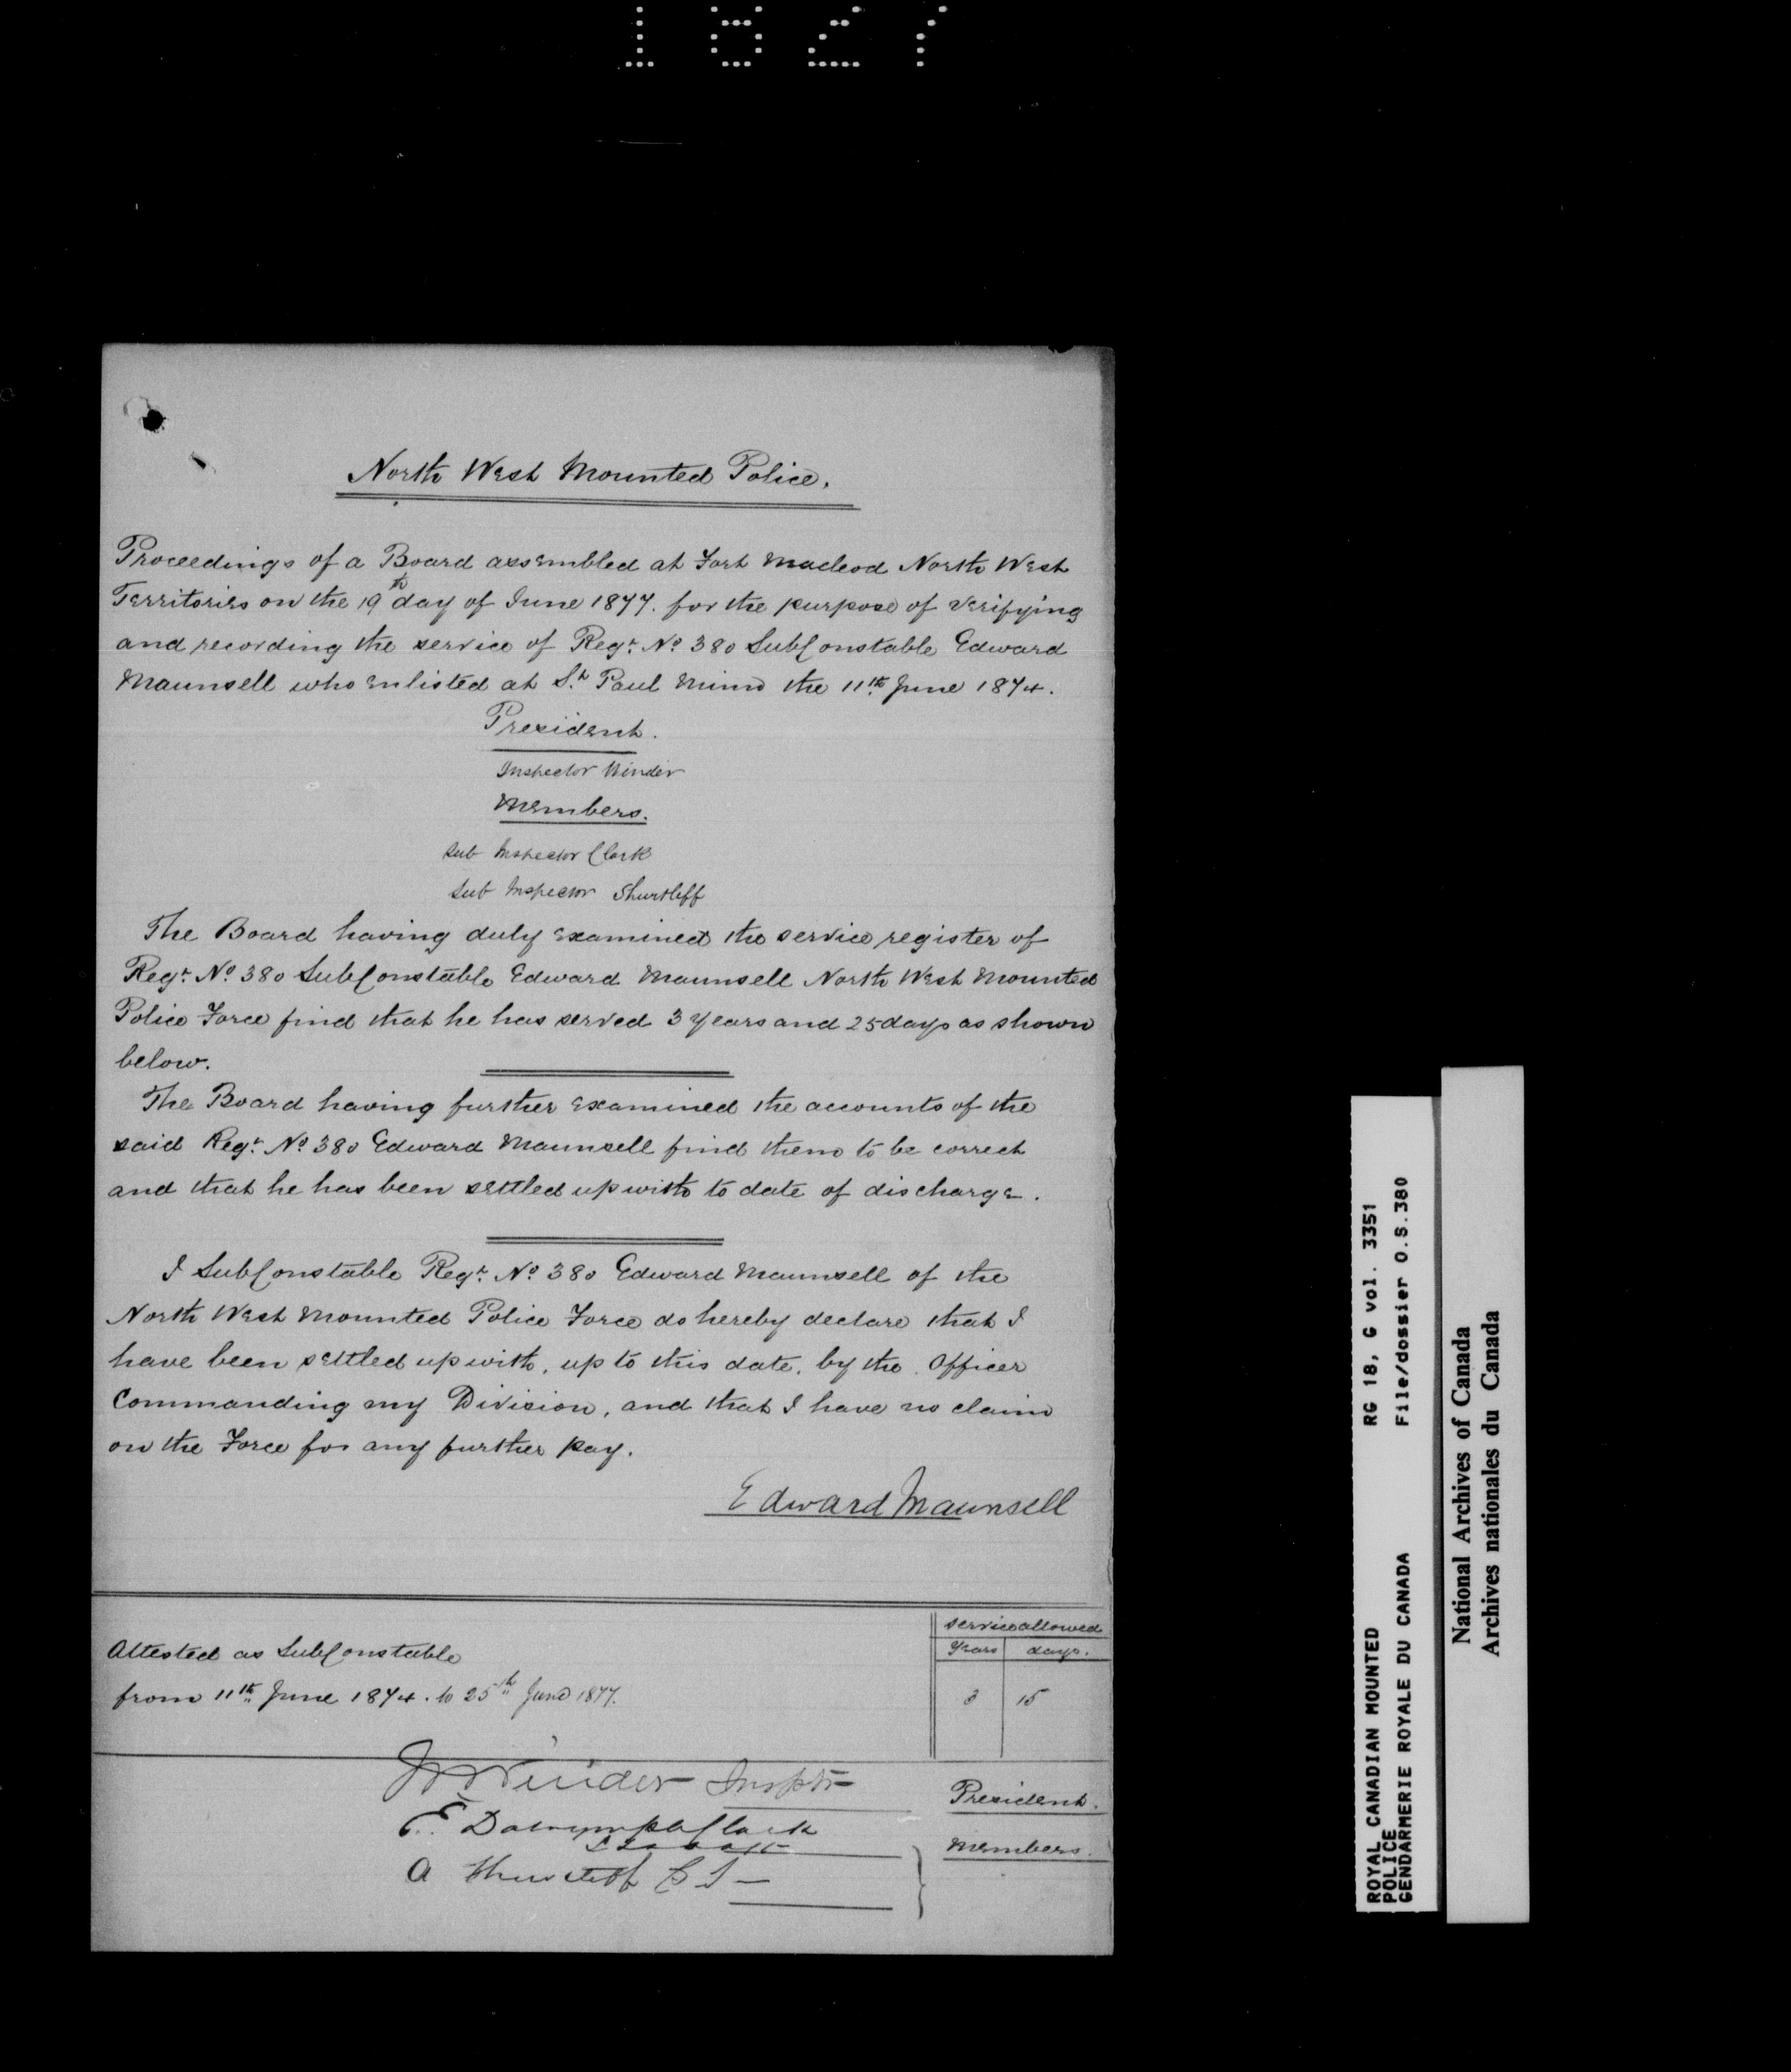 1827
North West Mounted Police.
Proceedings of a Board assembled at Fort Macleod North West
Territories on the 19th day of June 1877. for the purpose of verifying
and recording the service of Regt. No 380 SubConstable Edward
Maunsell who enlisted at St. Paul Minn the 11th June 1874.
President.
Inspector Winder
Members.
Sub Inspector Clark
Sub Inspector Shurtleff
The Board having duly examined the service register of
Regt. No 380 SubConstable Edward Maunsell North West Mounted
Police Force find that he has served 3 years and 25 days as shown
below.
The Board having further examined the accounts of the
said Regt. No 380 Edward Maunsell find them to be correct
and that he has been settled up with to date of discharge.
I SubConstable Regt. No 380 Edward Maunsell of the
North West Mounted Police Force do hereby declare that I
have been settled up with, up to this date, by the Officer
Commanding my Division, and that I have no claim
on the Force for any further pay.
Edward Maunsell
service allowed
Years days.
Attested as SubConstable
from 11th June 1874. to 25th June 1877.
3 15
Winder Inspr
President.
E. Dalrymple Clark
Members.
A Shurtleff S I
ROYAL CANADIAN MOUNTED RG 18, G vol. 3351
POLICE
GENDARMERIE ROYALE DU CANADA File/dossier O.S.380
National Archives of Canada
Archives nationales du Canada